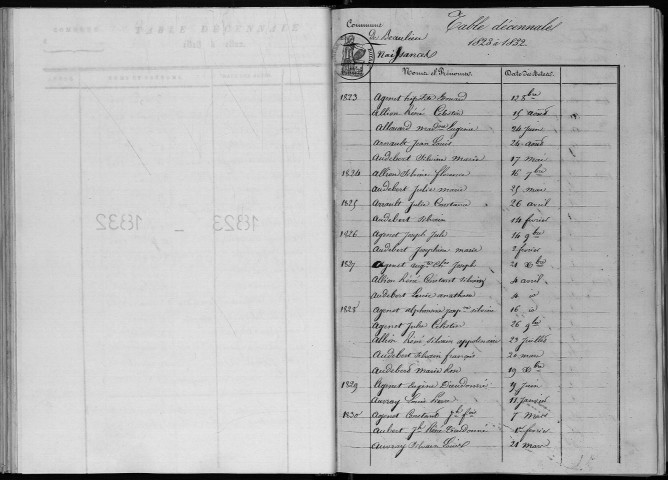 TABLE DÉCENNALE
1823 - 1832
Commune
De Beaulieu
Naissances
Table décennale
1823 à 1832.
Noms et Prénoms
Date des Actes
1823 Agenet 12 8bre
Allion Réné Célestin 15 août
Allouard Eugénie 24 Juin
Arnault Jean Louis 24 août
Audebert Silvine Marie 17 mai
1824 Allion Silvine Florence 16 7bre
Audebert Julie marie 25 mai
1825 Arrault Julie 26 avril
Audebert Silvain 14 fevrier
1826 Agenet Joseph Jules 14 9bre
Audebert Josephine marie 2 fevrier
1827 Agenet Joseph 21 Xbre
Allion Réné Constant Silvain 4 avril
Audebert Louis 4 id
1828 Agenet alphonsine Silvine 16 id
Agenet Julie Célestine 26 9bre
Allion Réné Silvain 29 Juillet
Audebert Silvain françois 20 mars
Audebert Marie 19 Xbre
1829 Agenet Eugène Dieudonné 9 Juin
Auvray Louis 11 Janvier
1830 Agenet Constant 7 Mars
Aubert Jh Réné Dieudonné fevrier
Auvray Silvain Louis 21 Mars